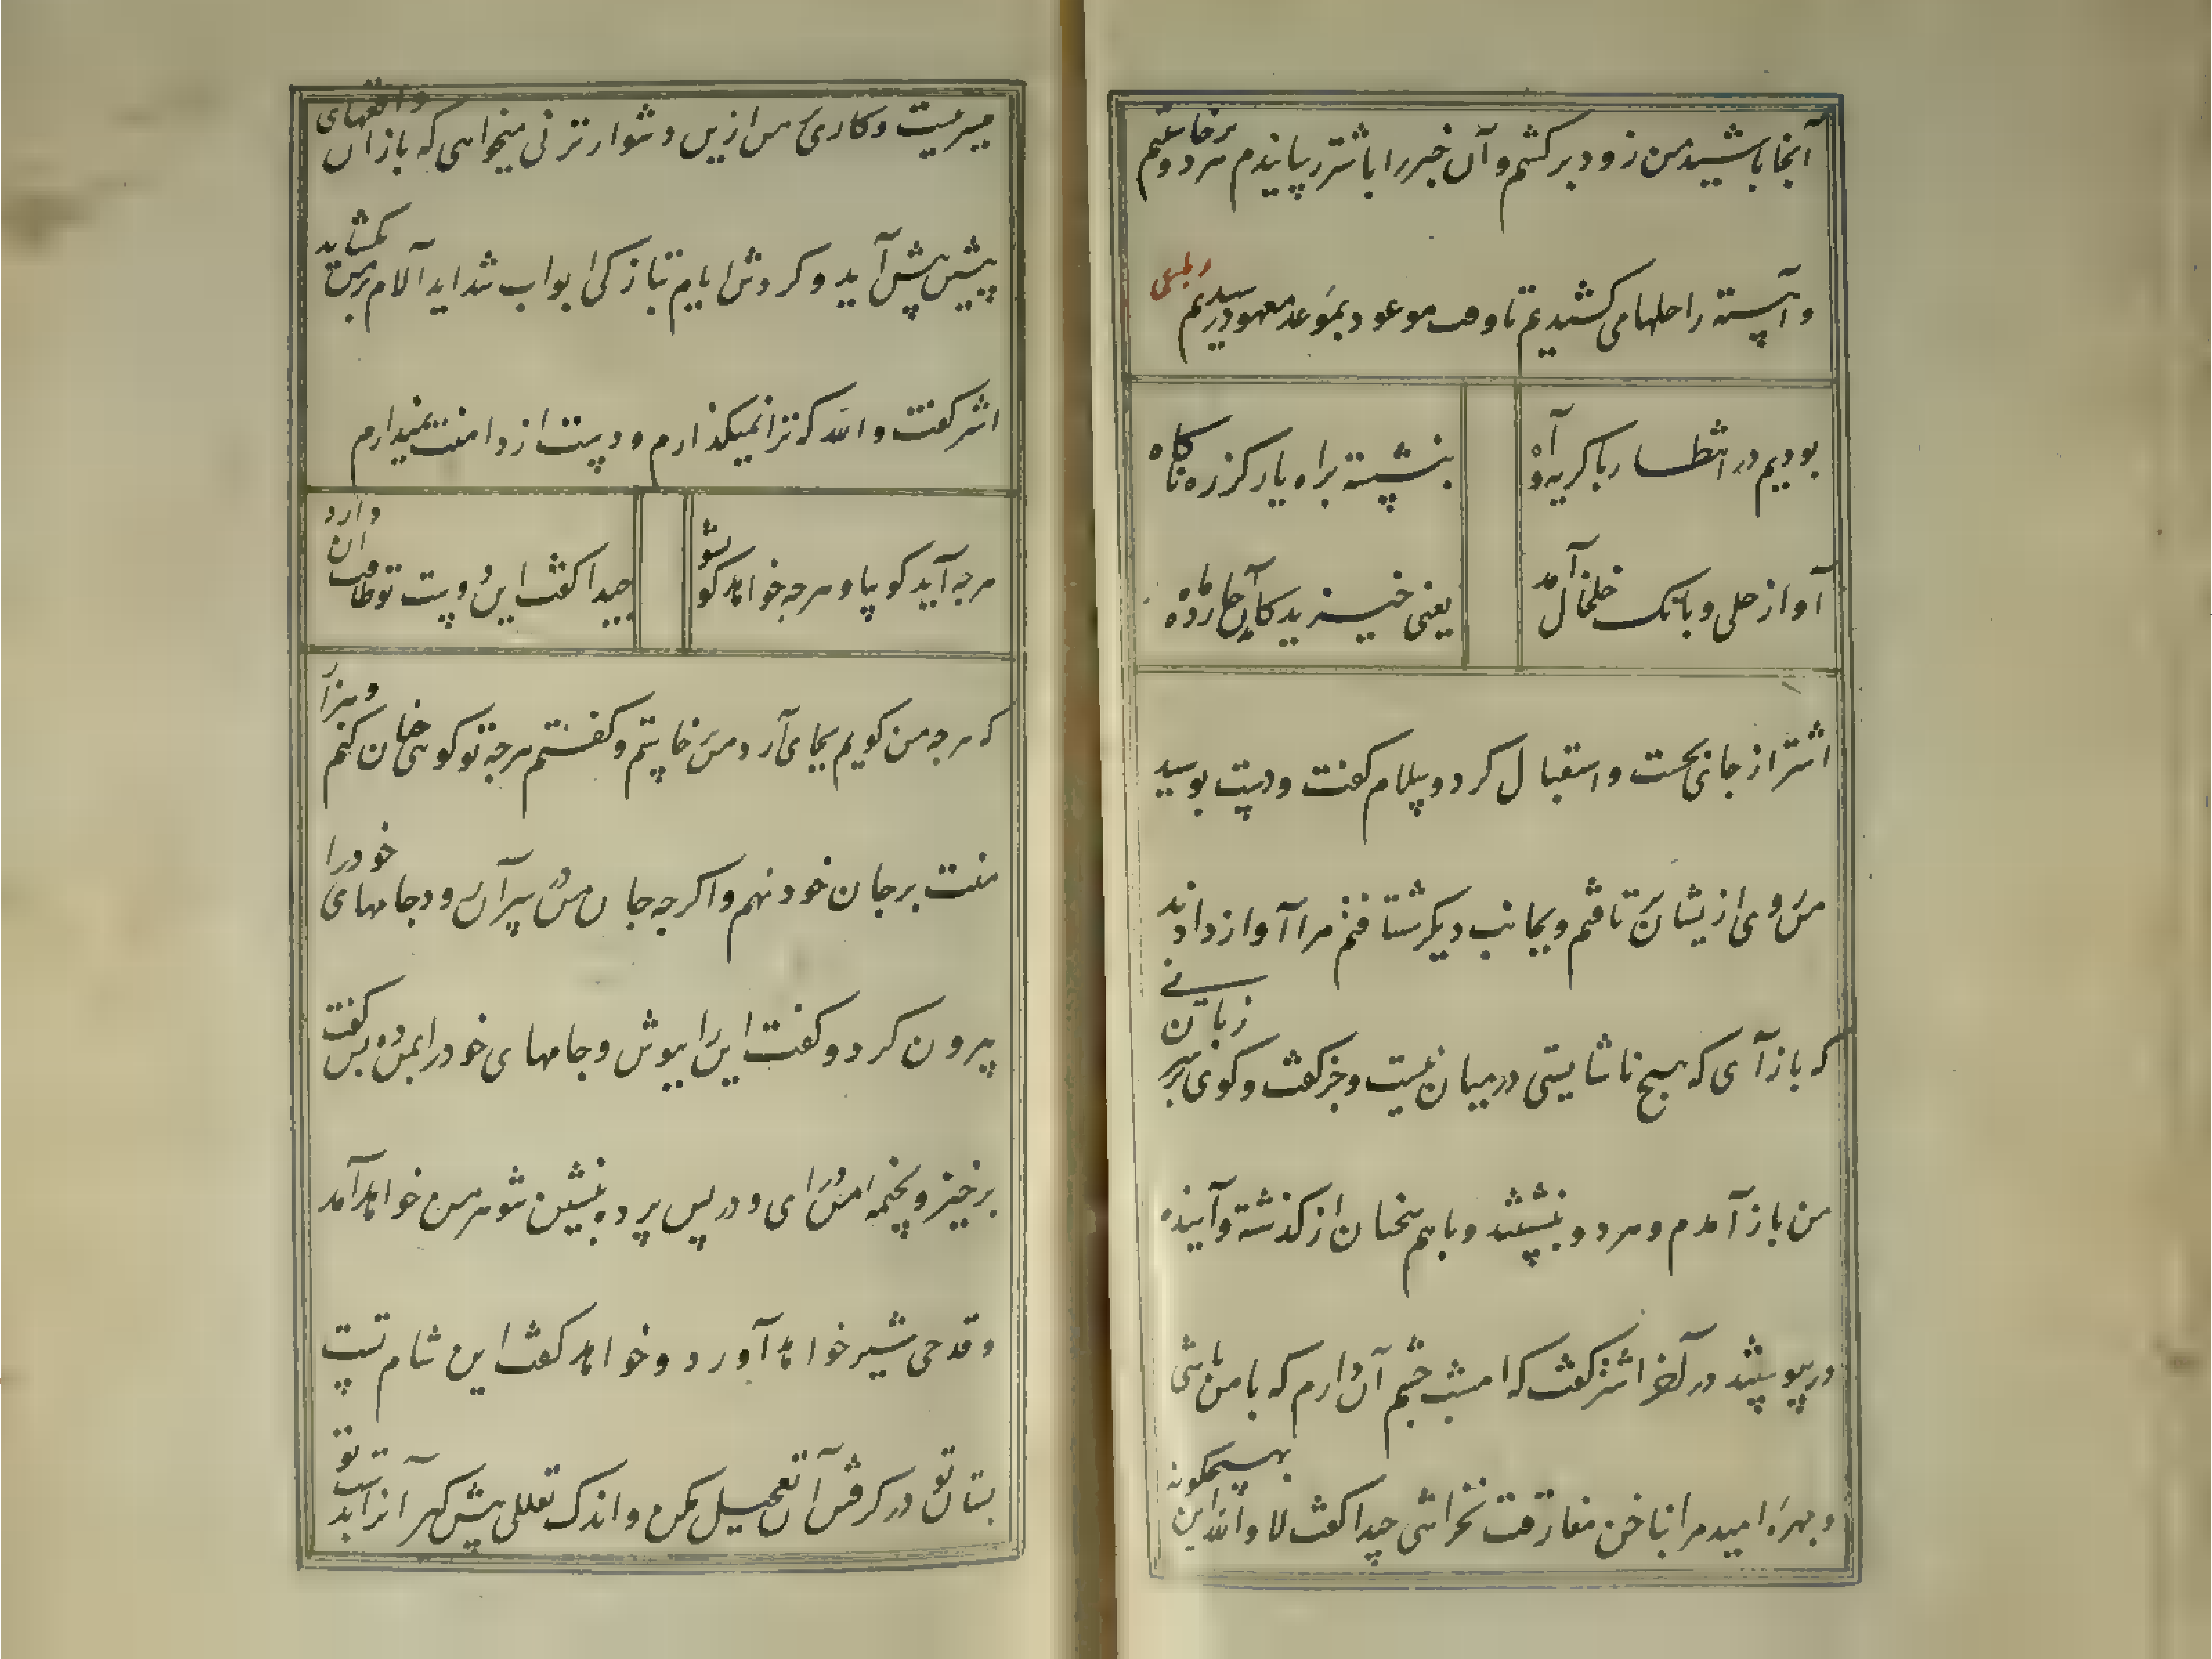 آنجا باشید من زود برکشم و آن خبر را باشتر رسانیدم هر دو برخاستیم
و آهسته راحلها می کشیدیم تا وقت موعود بموعد معهود رسیدیم
رباعی
بودیم در انتظار با گریه و آه
بنشسته براه یار کز ره ناگاه
آواز حلی و بانک خلخال آمد
یعنی خیزید کآن جا رده ماه
اشتر از جای بجست و استقبال کرد و سلام کفت و دست بوسید
من روی ازیشان برتافتم و بجانب دیکر شتافتم مرا آواز دادند
که بازآی که هیچ ناشایستی درمیان نیست و جز کفت و کوی بر سر زبان نی
من باز آمدم و هر دو بنشستند و باهم سخنان از کذشته و آینده
درپیوستند در آخر اشتر کفت که امشب چشم آن دارم که با من باشی
و چهره امید مرا بناخن مفارقت نخراشی جیدا کفت لا والله این بهیچکونه
میسر نیست و کاری بر من ازین دشوارتر نی میخواهی که باز آن واقعهای
پیشین پیش آید و کردش ایام بتازکی ابواب شداید آلام بر من بکشاید
اشتر کفت والله که ترا نمیکذارم و دست از دامنت نمیدارم
هرچه آید کو بیا و هرچه خواهد کو بشو
جیدا کفت این دوست تو طاقت آن دارد
که هرچه من کویم بجای آرد من برخاستم و کفتم هرچه تو کوئی چنان کنم و هزار
منت بر جان خود نهم و اکرچه جان من در سر آن رود جامهای خود را
بیرون کرد و کفت این را بپوش و جامهای خود را بمن ده پس کفت
برخیز و بخیمه من درآی و در پس پرده بنشین شوهر من خواهد آمد
و قدحی شیر خواهد آورد و خواهد کفت این شام تست
بستان تو در کرفتن آن تعجیل مکن و اندک تعللی پیش کیر آنرا بدست تو